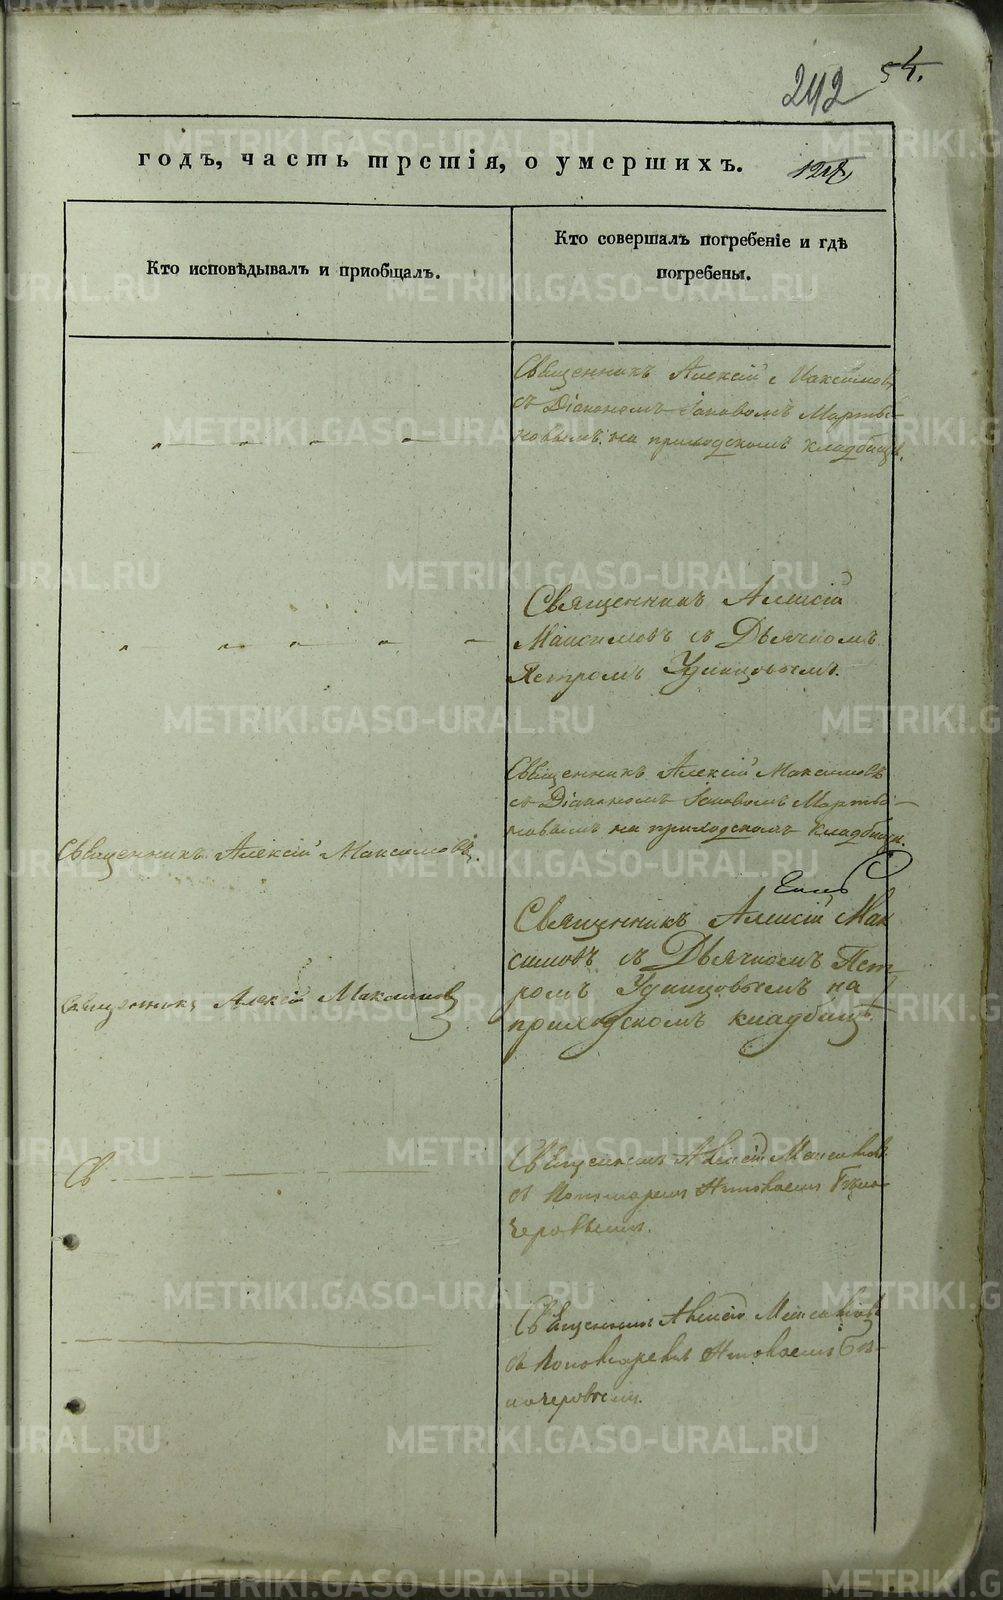 242
54.
годъ, часть третія, о умершихъ.
Кто исповѣдывалъ и пріобщалъ.
Кто совершалъ погребеніе и гдѣ
погребены.
Священникъ Алексій Максимовъ
съ Діакономъ Іаковомъ Марты-
новымъ на приходскомъ кладбищѣ.
Священникъ Алексій
Максимовъ съ Дьячкомъ
Петромъ Удинцовымъ.
Священникъ Алексій Максимовъ
съ Діакономъ Іаковомъ Марты-
новымъ на приходскомъ кладбищѣ.
Священникъ Алексій Максимовъ.
Священникъ Алексій Мак
симовъ съ Дьячкомъ Пет
ромъ Удинцовымъ на
приходскомъ кладбищѣ
Священникъ Алексій Максимовъ
Св
Священникъ Алексій
съ Пономаремъ
Священникъ Алексій
съ Пономаремъ
METRIKI.GASO-URAL.RU